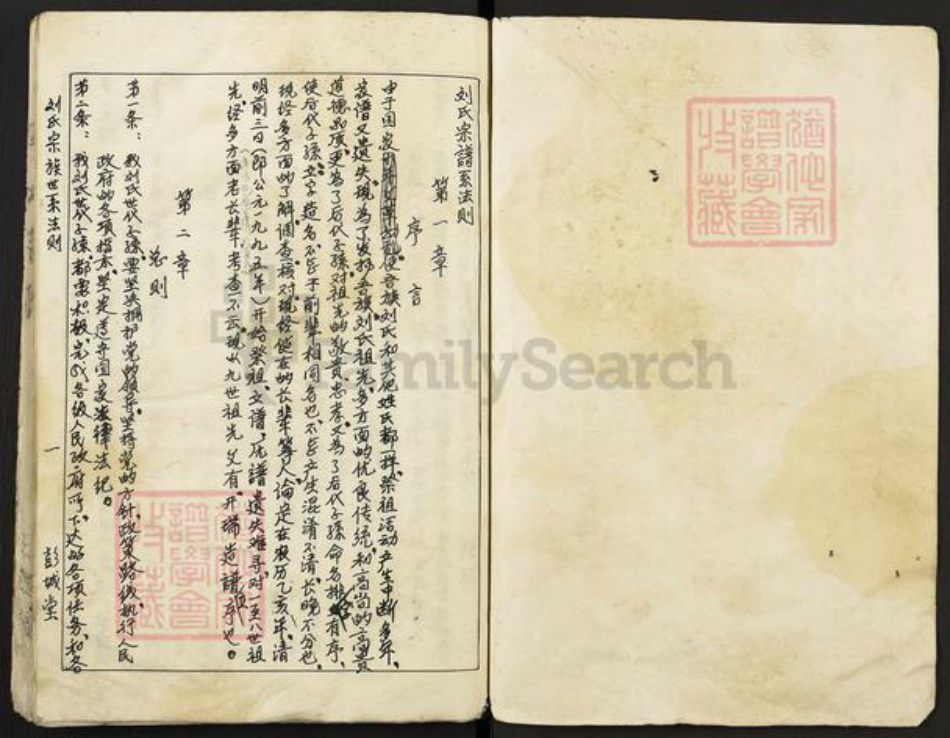 刘氏宗谱系法则
第一章
序言
由于国家形 使吾族刘氏和其他姓氏都一样祭祖活动产生中断多年、
族谱又遗失、现为了发扬吾族刘氏祖先、多方面的优良传统和高尚的高贵
道德品质更为了后代子孫对祖先的敬贵忠孝又为了后代子孫命名排 有序、
使后代子孫立字造名不至于前辈相同名也、不至产生混淆不清、长晚不分也、
现经多方面的了解调查、核对现经健在的长辈等人论定在农历乙亥年、清
明前三日(即公元一九九五年)开始祭祖、立谱、 谱遗失难寻、对一至八世祖
先经多方面老长辈、考查不云、现从九世祖先 有开端造谱 序也。
第二章
总则
第一条：我刘氏世代子孫、要坚决拥护党的领导、坚持党的方针、政策路线、执行人民
政府的各项指示、坚定遵守国家法律法纪。
第二条：我刘氏世代子孫、都要积极、完成各级人民政府所下达的各项任务、和各
刘氏宗族世系法则
一
彭城堂
猶他家譜學會收藏
猶他家譜學會收藏
FamilySearch